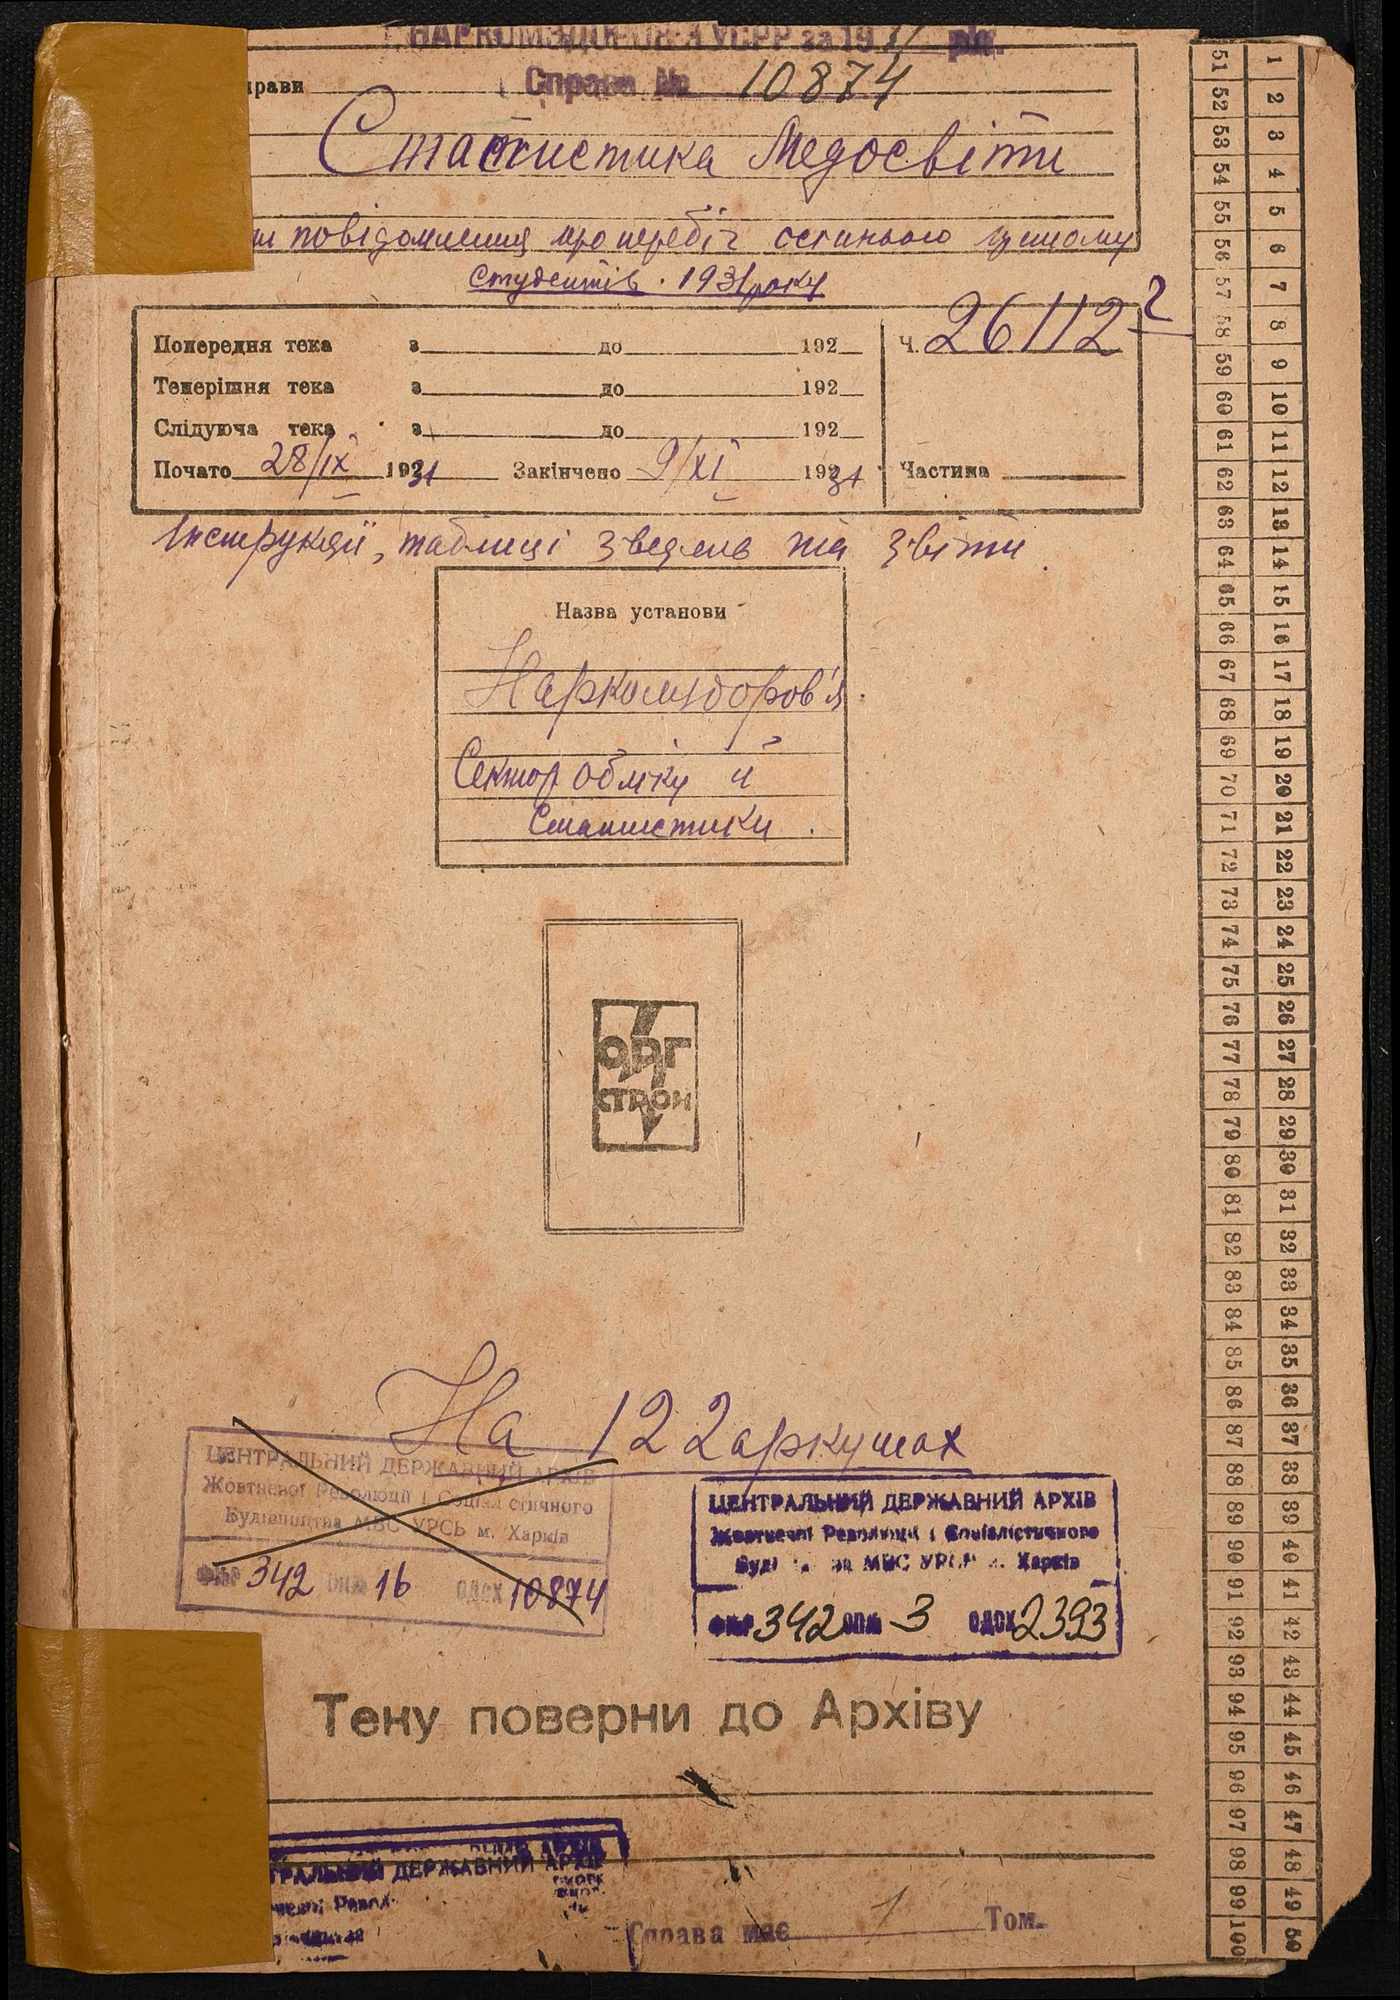 НАРКОМЗДОРОВ'Я УСРР за 1931 рік.
прави Справа № 10874
Статистика Медосвіти
повідомлення про перебіг останнього прийому
студентів. 1931 року
Попередня тека з до 192
Ч. 26112 2
Теперішня тека з до 192
Слідуюча тека з до 192
Почато 28/IX 1931 Закінчено 9/XI 1931
Частина
Інструкції, таблиці зведень та звіти.
Назва установи
Наркомздоров'я.
Сектор обліку й
Статистики.
ОРГ
СТРОЙ
На 122 аркушах
ЦЕНТРАЛЬНИЙ ДЕРЖАВНИЙ АРХІВ
Жовтневої Революції і Соціалістичного
Будівництва МВС УРСР м. Харків
ФНР 342 ОПИ 16 ОДСХ 10874
ЦЕНТРАЛЬНИЙ ДЕРЖАВНИЙ АРХІВ
Жовтневої Революції і Соціалістичного
Буді ва МВС УРСР м. Харків
ФНР 342 ОПИ 3 ОДСХ 2393
Теку поверни до Архіву
ТРАЛЬНИЙ ДЕРЖАВНИЙ АРХІВ
Справа має 1 Том.
1 2 3 4 5 6 7 8 9 10 11 12 13 14 15 16 17 18 19 20 21 22 23 24 25 26 27 28 29 30 31 32 33 34 35 36 37 38 39 40 41 42 43 44 45 46 47 48 49 50
51 52 53 54 55 56 57 58 59 60 61 62 63 64 65 66 67 68 69 70 71 72 73 74 75 76 77 78 79 80 81 82 83 84 85 86 87 88 89 90 91 92 93 94 95 96 97 98 99 100